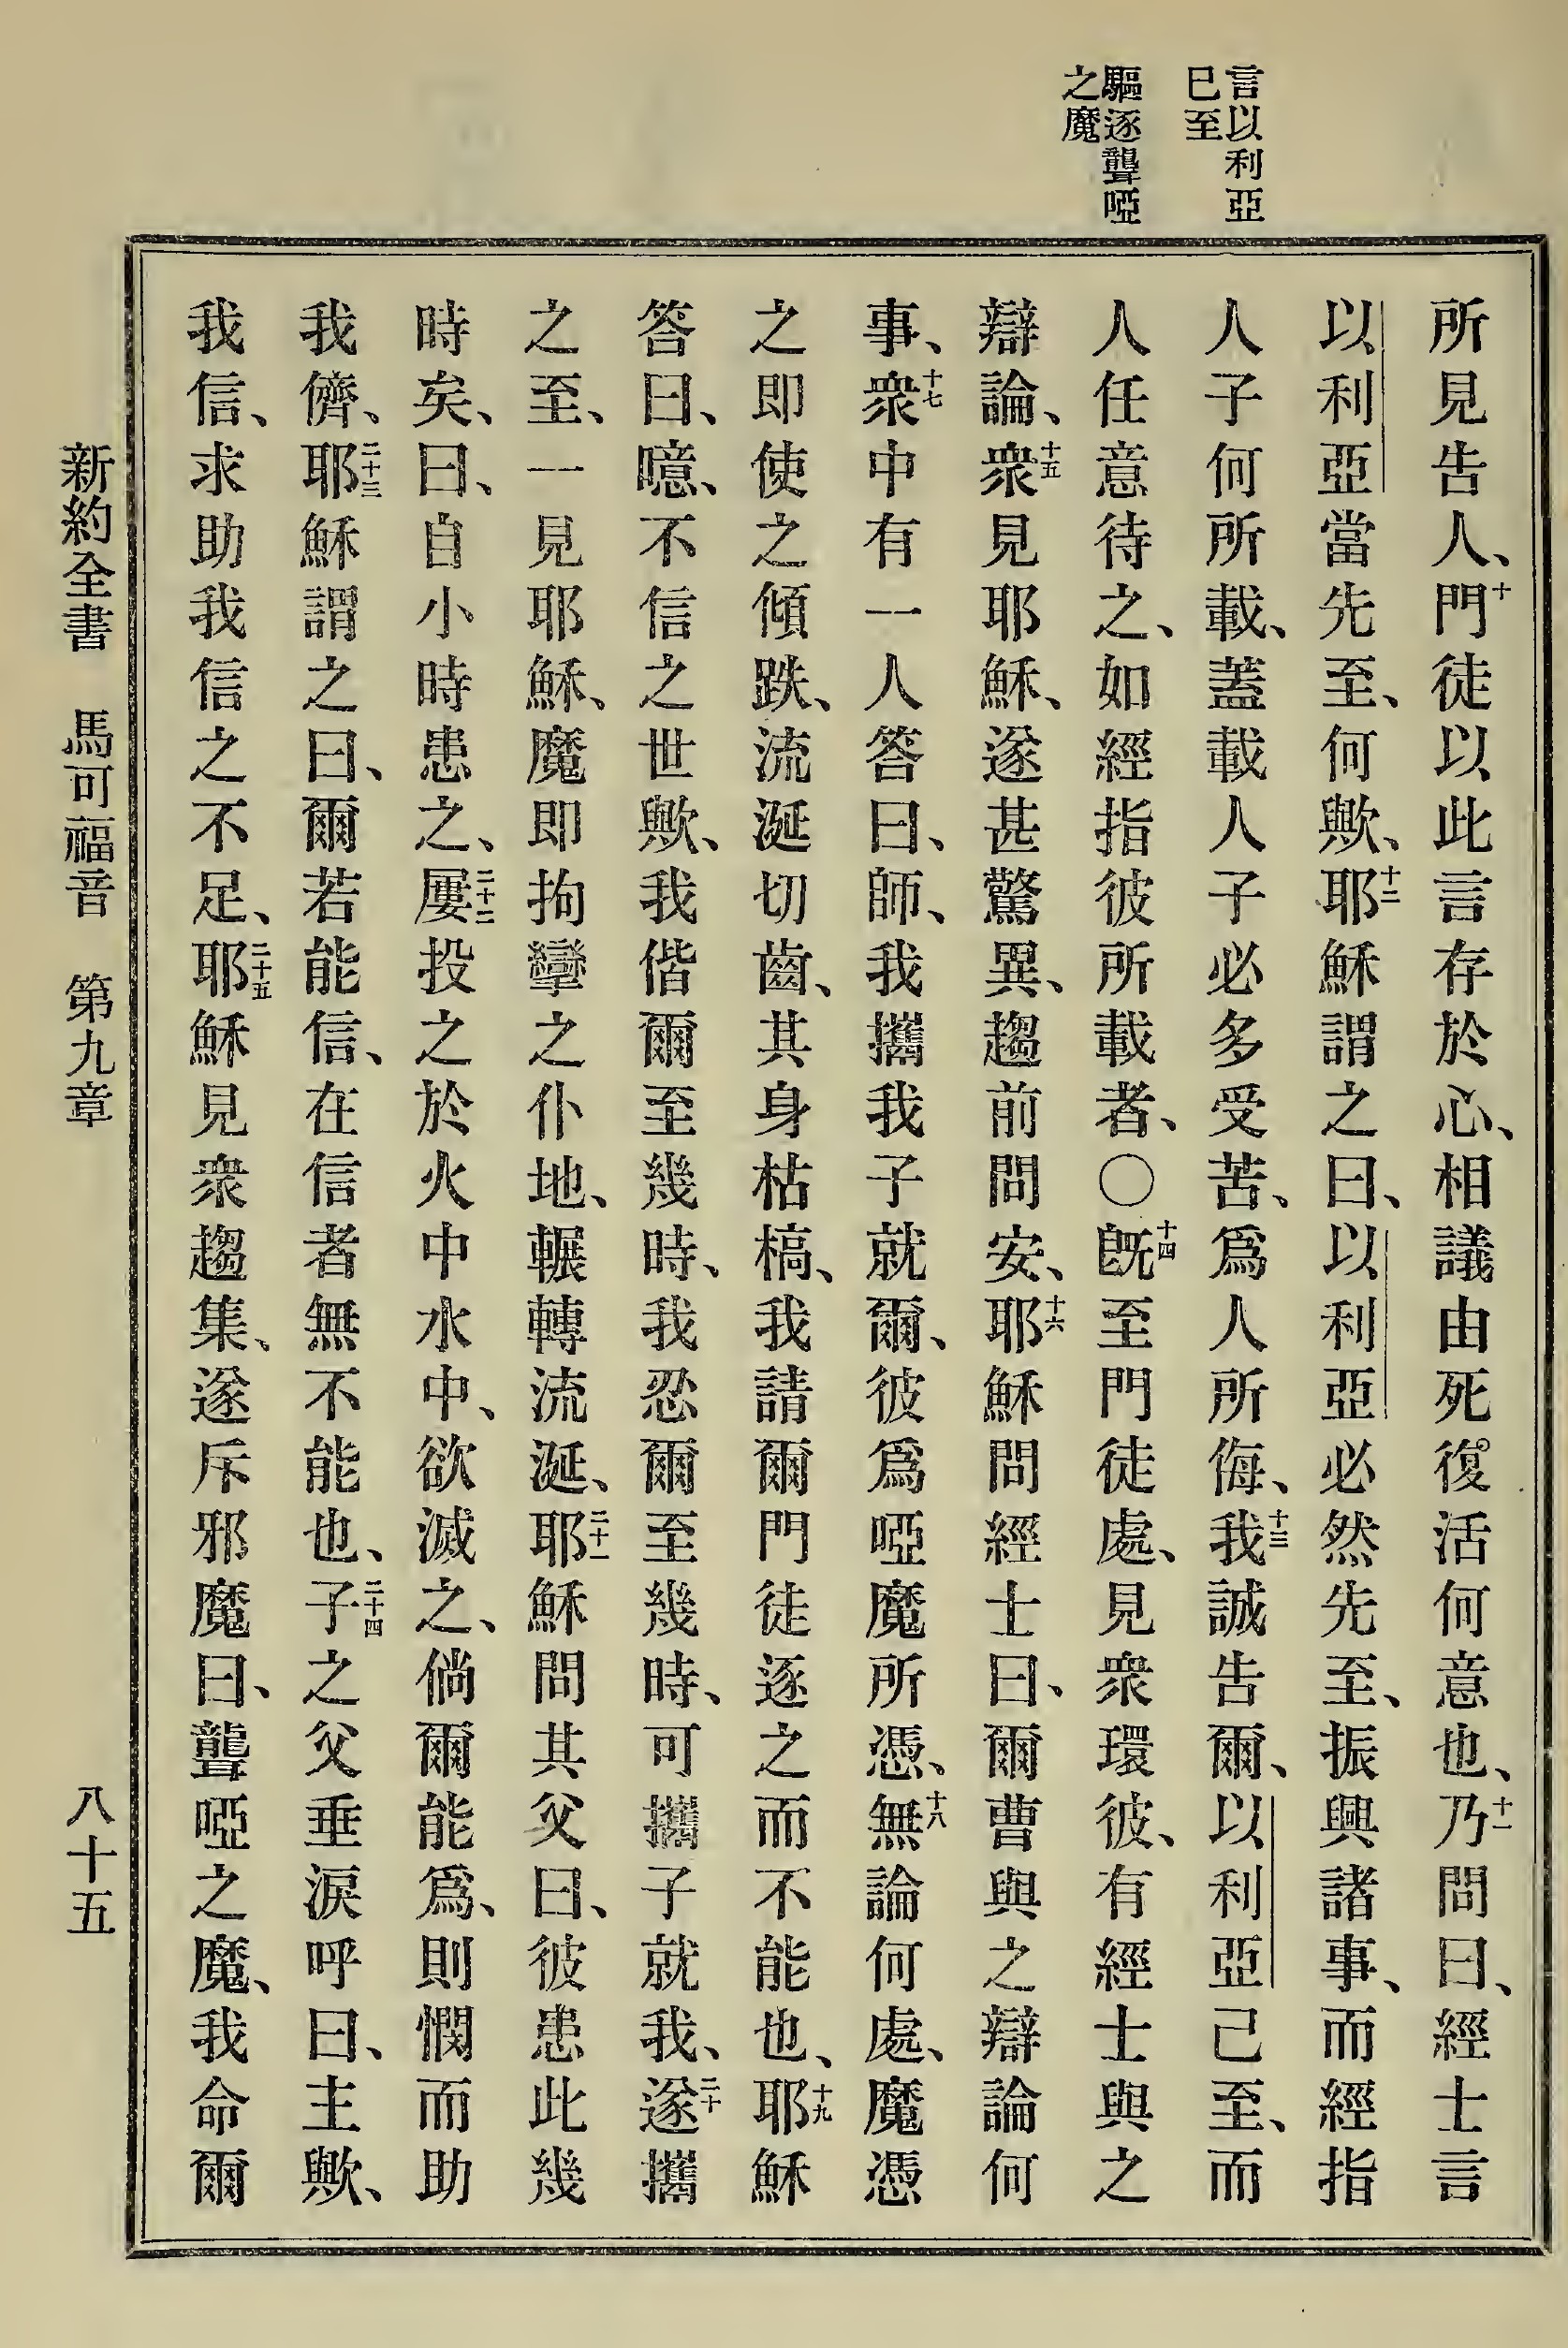 言以利亞
已至
驅逐聾啞
之魔
所見告人、十門徒以此言存於心、相議由死復活何意也、十一乃問曰、經士言
以利亞當先至、何歟、十二耶穌謂之曰、以利亞必然先至、振興諸事、而經指
人子何所載、蓋載人子必多受苦、爲人所侮、十三我誠告爾、以利亞已至、而
人任意待之、如經指彼所載者、〇十四既至門徒處、見衆環彼、有經士與之
辯論、十五衆見耶穌、遂甚驚異、趨前問安、十六耶穌問經士曰、爾曹與之辯論何
事、十七衆中有一人答曰、師、我攜我子就爾、彼爲啞魔所憑、十八無論何處、魔憑
之卽使之傾跌、流涎切齒、其身枯槁、我請爾門徒逐之而不能也、十九耶穌
答曰、噫、不信之世歟、我偕爾至幾時、我忍爾至幾時、可攜子就我、二十遂攜
之至、一見耶穌、魔卽拘攣之仆地、輾轉流涎、二十一耶穌問其父曰、彼患此幾
時矣、曰、自小時患之、二十二屢投之於火中水中、欲滅之、倘爾能爲、則憫而助
我儕、二十三耶穌謂之曰、爾若能信、在信者無不能也、二十四子之父垂淚呼曰、主歟、
我信、求助我信之不足、二十五耶穌見衆趨集、遂斥邪魔曰、聾啞之魔、我命爾
新約全書 馬可福音 第九章 八十五